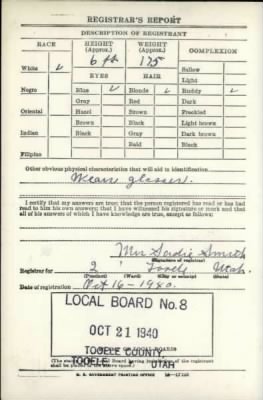 REGISTRAR'S REPORT
DESCRIPTION OF REGISTRANT
RACE HEIGHT (Approx.) WEIGHT (Approx.) COMPLEXION
6 ft 175
White ✓ Sallow
EYES HAIR Light
Negro Blue ✓ Blonde ✓ Ruddy ✓
Gray Red Dark
Oriental Hazel Brown Freckled
Brown Black Light brown
Indian Black Gray Dark brown
Bald Black
Filipino
Other obvious physical characteristics that will aid in identification
Wears glasses.
I certify that my answers are true; that the person registered has read or has had
read to him his own answers; that I have witnessed his signature or mark and that
all of his answers of which I have knowledge are true, except as follows:
Mrs Sadie Smith
(Signature of registrar)
Registrar for 2 Tooele Utah.
(Precinct) (Ward) (City or county) (State)
Date of registration Oct 16-1940.
LOCAL BOARD No. 8
OCT 21 1940
TOOELE COUNTY,
TOOELE UTAH
U. S. GOVERNMENT PRINTING OFFICE